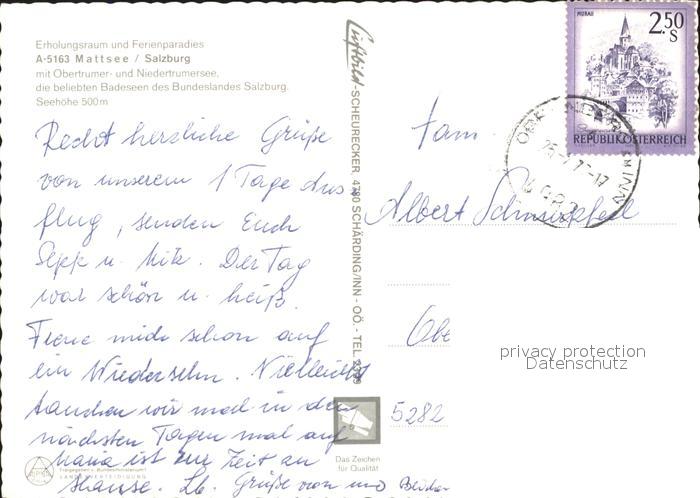 Erholungsraum und Ferienparadies
A-5163 Mattsee / Salzburg
mit Obertrumer- und Niedertrumersee,
die beliebten Badeseen des Bundeslandes Salzburg.
Seehöhe 500 m
Recht herzliche Grüße
von unserem 1 Tage Aus
flug, senden Euch
Sepp u. Mitz. Der Tag
war schön u. heiß.
Freue mich schon auf
ein Wiedersehn. Vielleicht
tauchen wir mal in den
nächsten Tagen mal auf
Maria ist zur Zeit zu
Hause. Lb. Grüße von uns Beiden
Freigegeben v. Bundesministerium f.
LANDESVERTEIDIGUNG
Luftbild-SCHEURECKER, 4780 SCHÄRDING/INN - OÖ. - TEL.
Das Zeichen
für Qualität
MURAU
2.50
S
REPUBLIK ÖSTERREICH
AM INN
Fam.
Albert
Obe
5282
privacy protection
Datenschutz